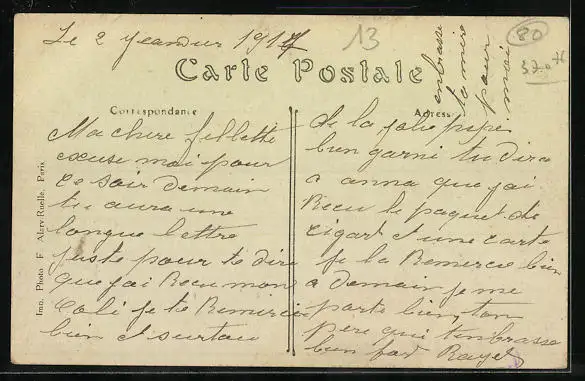 Le 2 Yeanvier 1917
13
80
37.0.76
Carte Postale
Correspondance
Adresse
Ma chere fillette
excuse moi pour
ce soir demain
tu aura une
longue lettre
juste pour te dire
que j'ai Recu mon
Coli je te Remircie
bien et surtou
de la jolie pipe
bien garni tu dira
a anna que j'ai
Recu le paquet de
cigart et une carte
je la Remercie bien
a demain je me
porte bien, ton
pere qui t'enbrasse
bien for
enbrasse
ta mie
pour
moi
Imp. Photo F Alary-Ruelle, Paris